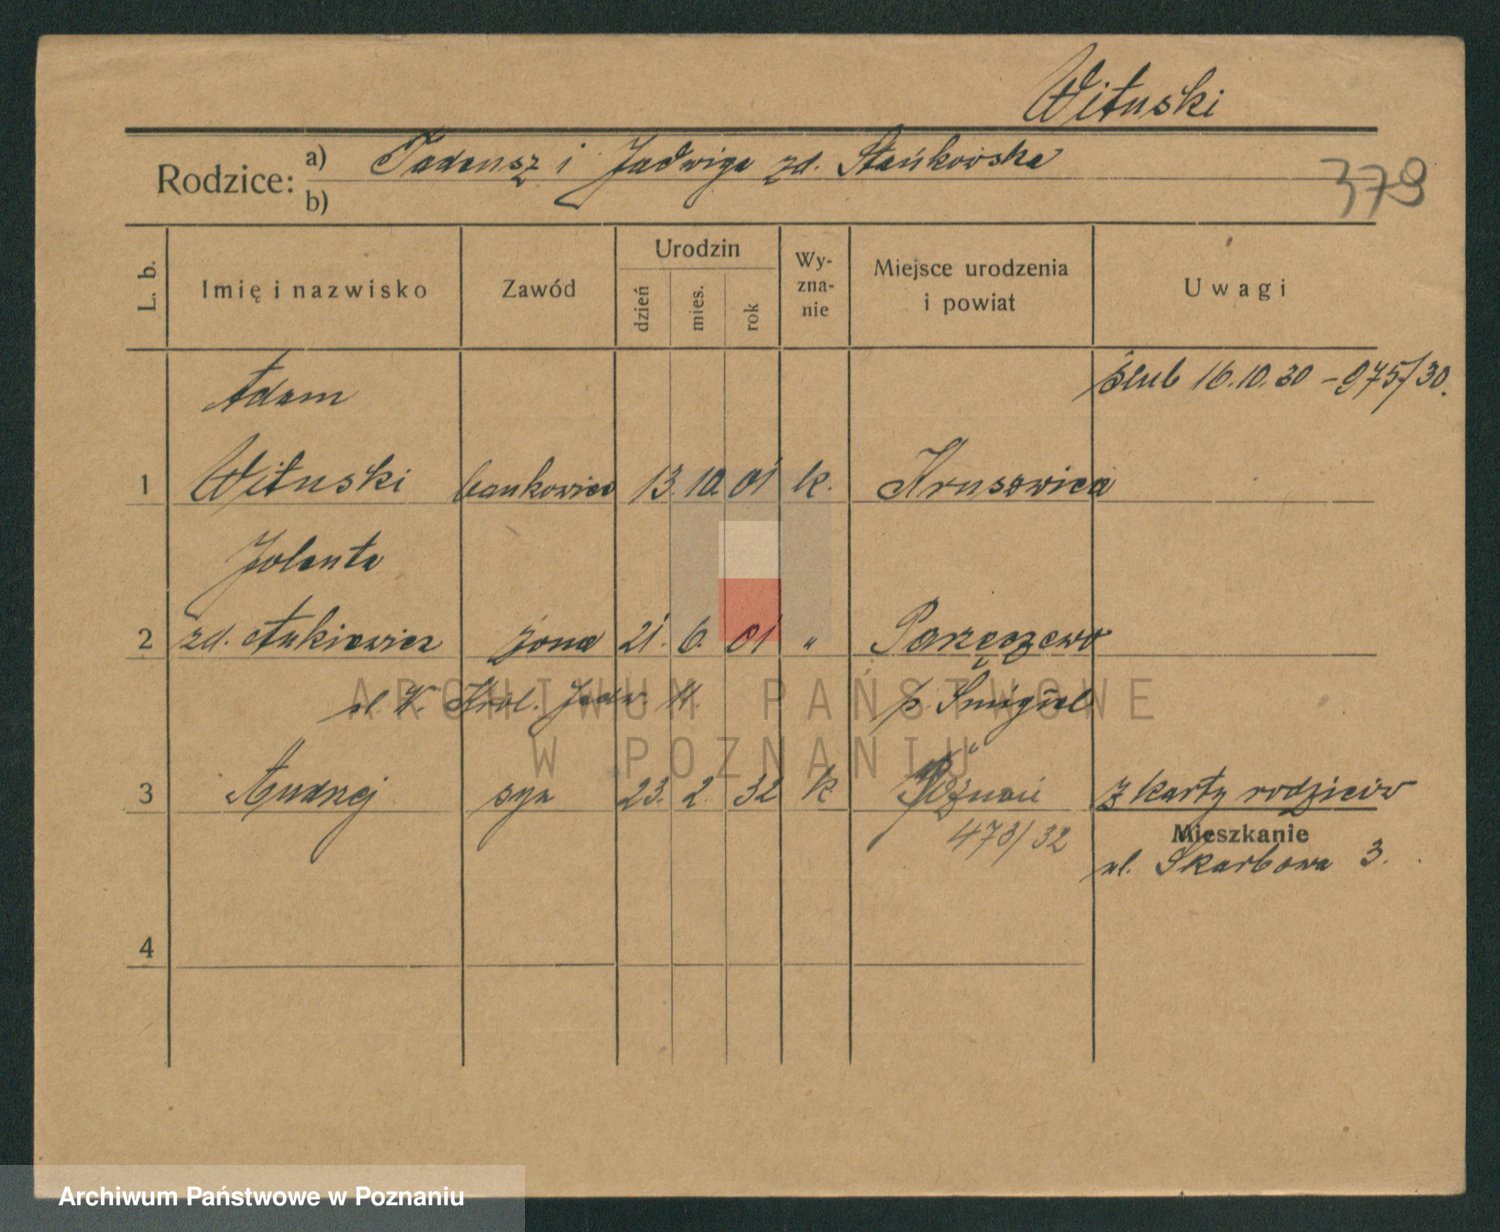 Wituski
Rodzice: a) Tadeusz i Jadwiga zd. Stańkowska
b)
379
L. b.
Imię i nazwisko
Zawód
Urodzin
dzień
mies.
rok
Wy-
zna-
nie
Miejsce urodzenia
i powiat
Uwagi
Adam
ślub 16.10.30 – 975/30.
1 Wituski bankowiec 13. 10 01 k. Kruszwica
Jolanta
2 zd. Ankiewicz żona 21. 6. 01 „ Parzęczewo
ul. W. Król. Jadw. 11.
p. Śmigiel
3 Andrzej syn 23. 2. 32 k Poznań z karty rodziców
473/32
Mieszkanie
ul. Skarbowa 3.
4
ARCHIWUM PAŃSTWOWE
W POZNANIU
Archiwum Państwowe w Poznaniu